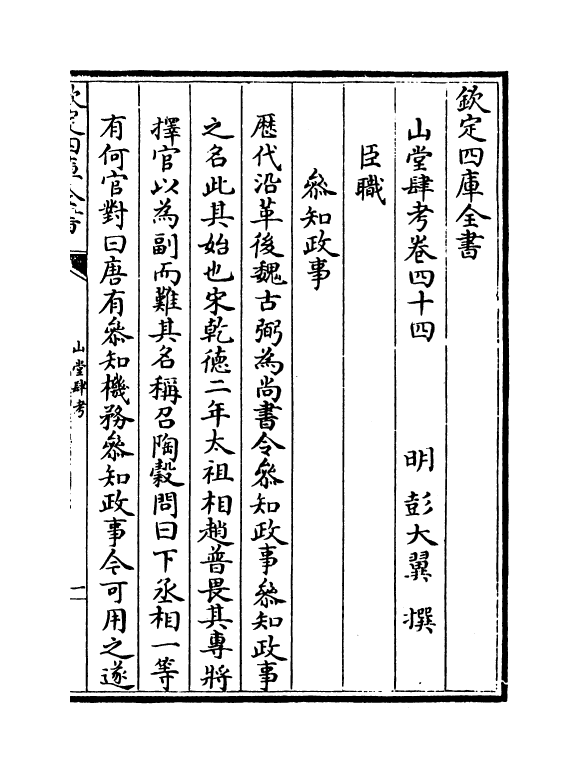 欽定四庫全書
山堂肆考卷四十四　明 彭大翼 撰
臣職
叅知政事
歴代沿革後魏古弼為尚書令叅知政事叅知政事
之名此其始也宋乾徳二年太祖相趙普畏其專將
擇官以為副而難其名稱召陶榖問曰下丞相一等
有何官對曰唐有叅知機務叅知政事今可用之遂
欽定四庫全書
山堂肆考
一